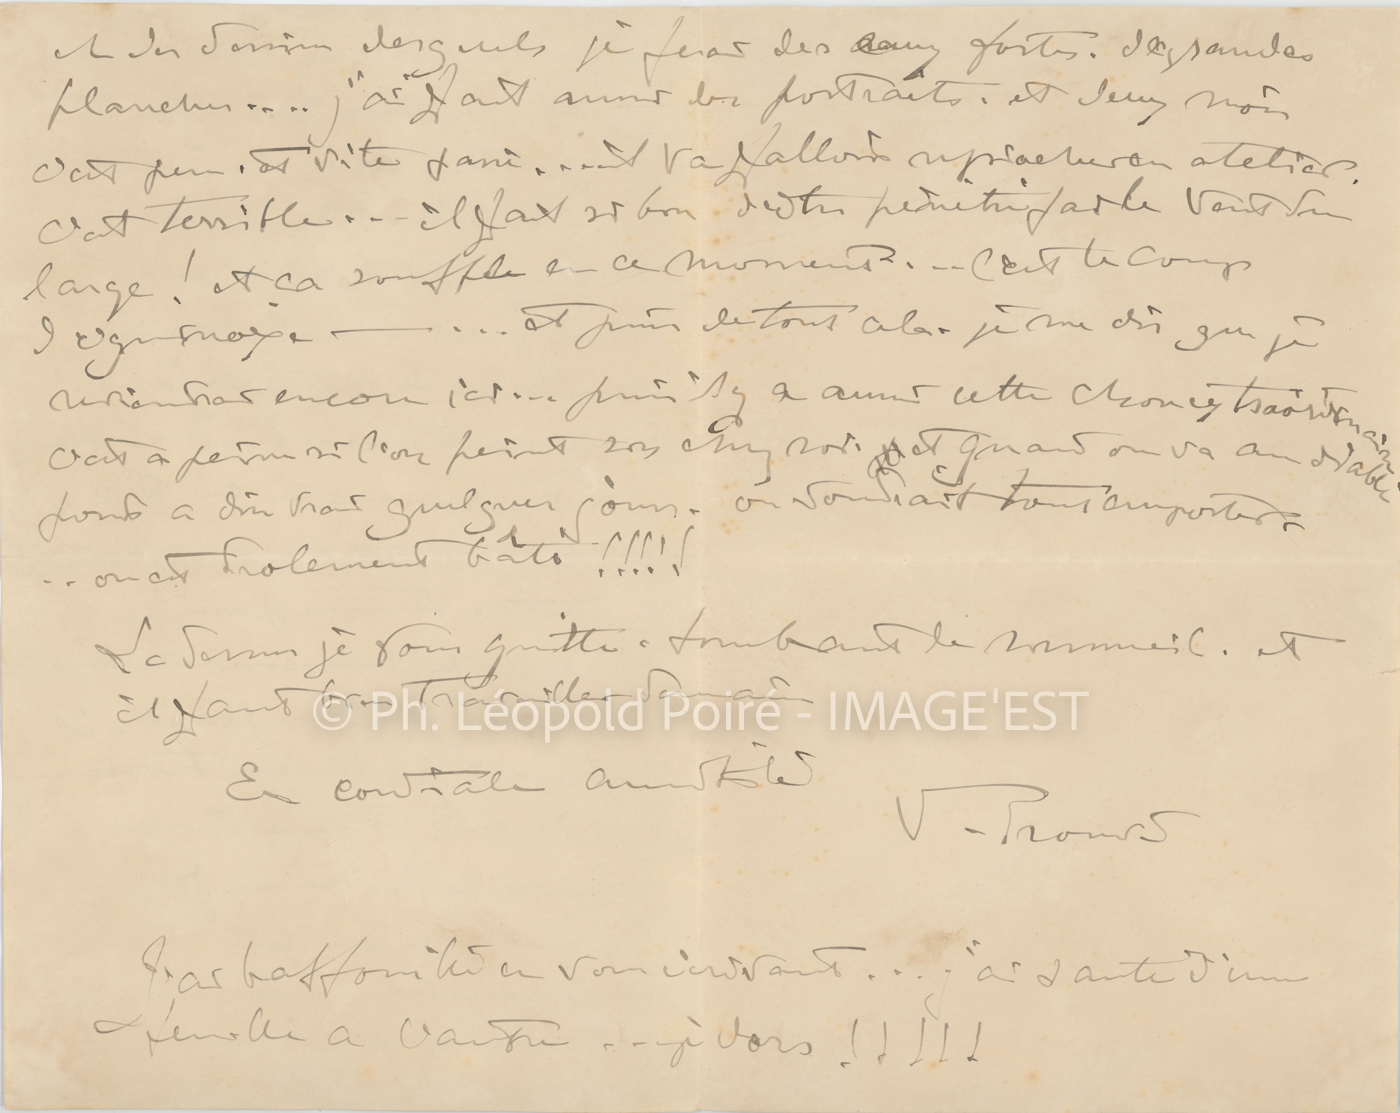 et des dessins desquels je ferai des eaux fortes. de grandes
planches.... j'ai fait aussi des portraits. et deux mois
c'est peu. et vite passé....il va falloir réintégrer un atelier.
c'est terrible... il fait si bon d'être pénétré par le vent du
large ! et ça souffle en ce moment... C'est le coup
d'équinoxe — ... et puis de tout cela. je me dis que je
reviendrai encore ici... puis il y a aussi cette chose extraordinaire
c'est à peine si l'on peint chez soi. et quand on va au diable
fond à dix vrai quelques jours. on voudrait tout emporter
.. on est drolement bâti !!!!!
La dessus je vous quitte. tombant de sommeil. et
il faut bien travailler demain
© Ph. Léopold Poiré - IMAGE'EST
En cordiale amitié
V. Prouvé
J'ai bafouillé en vous écrivant.... j'ai sauté d'une
feuille a l'autre ...je dors !!!!!